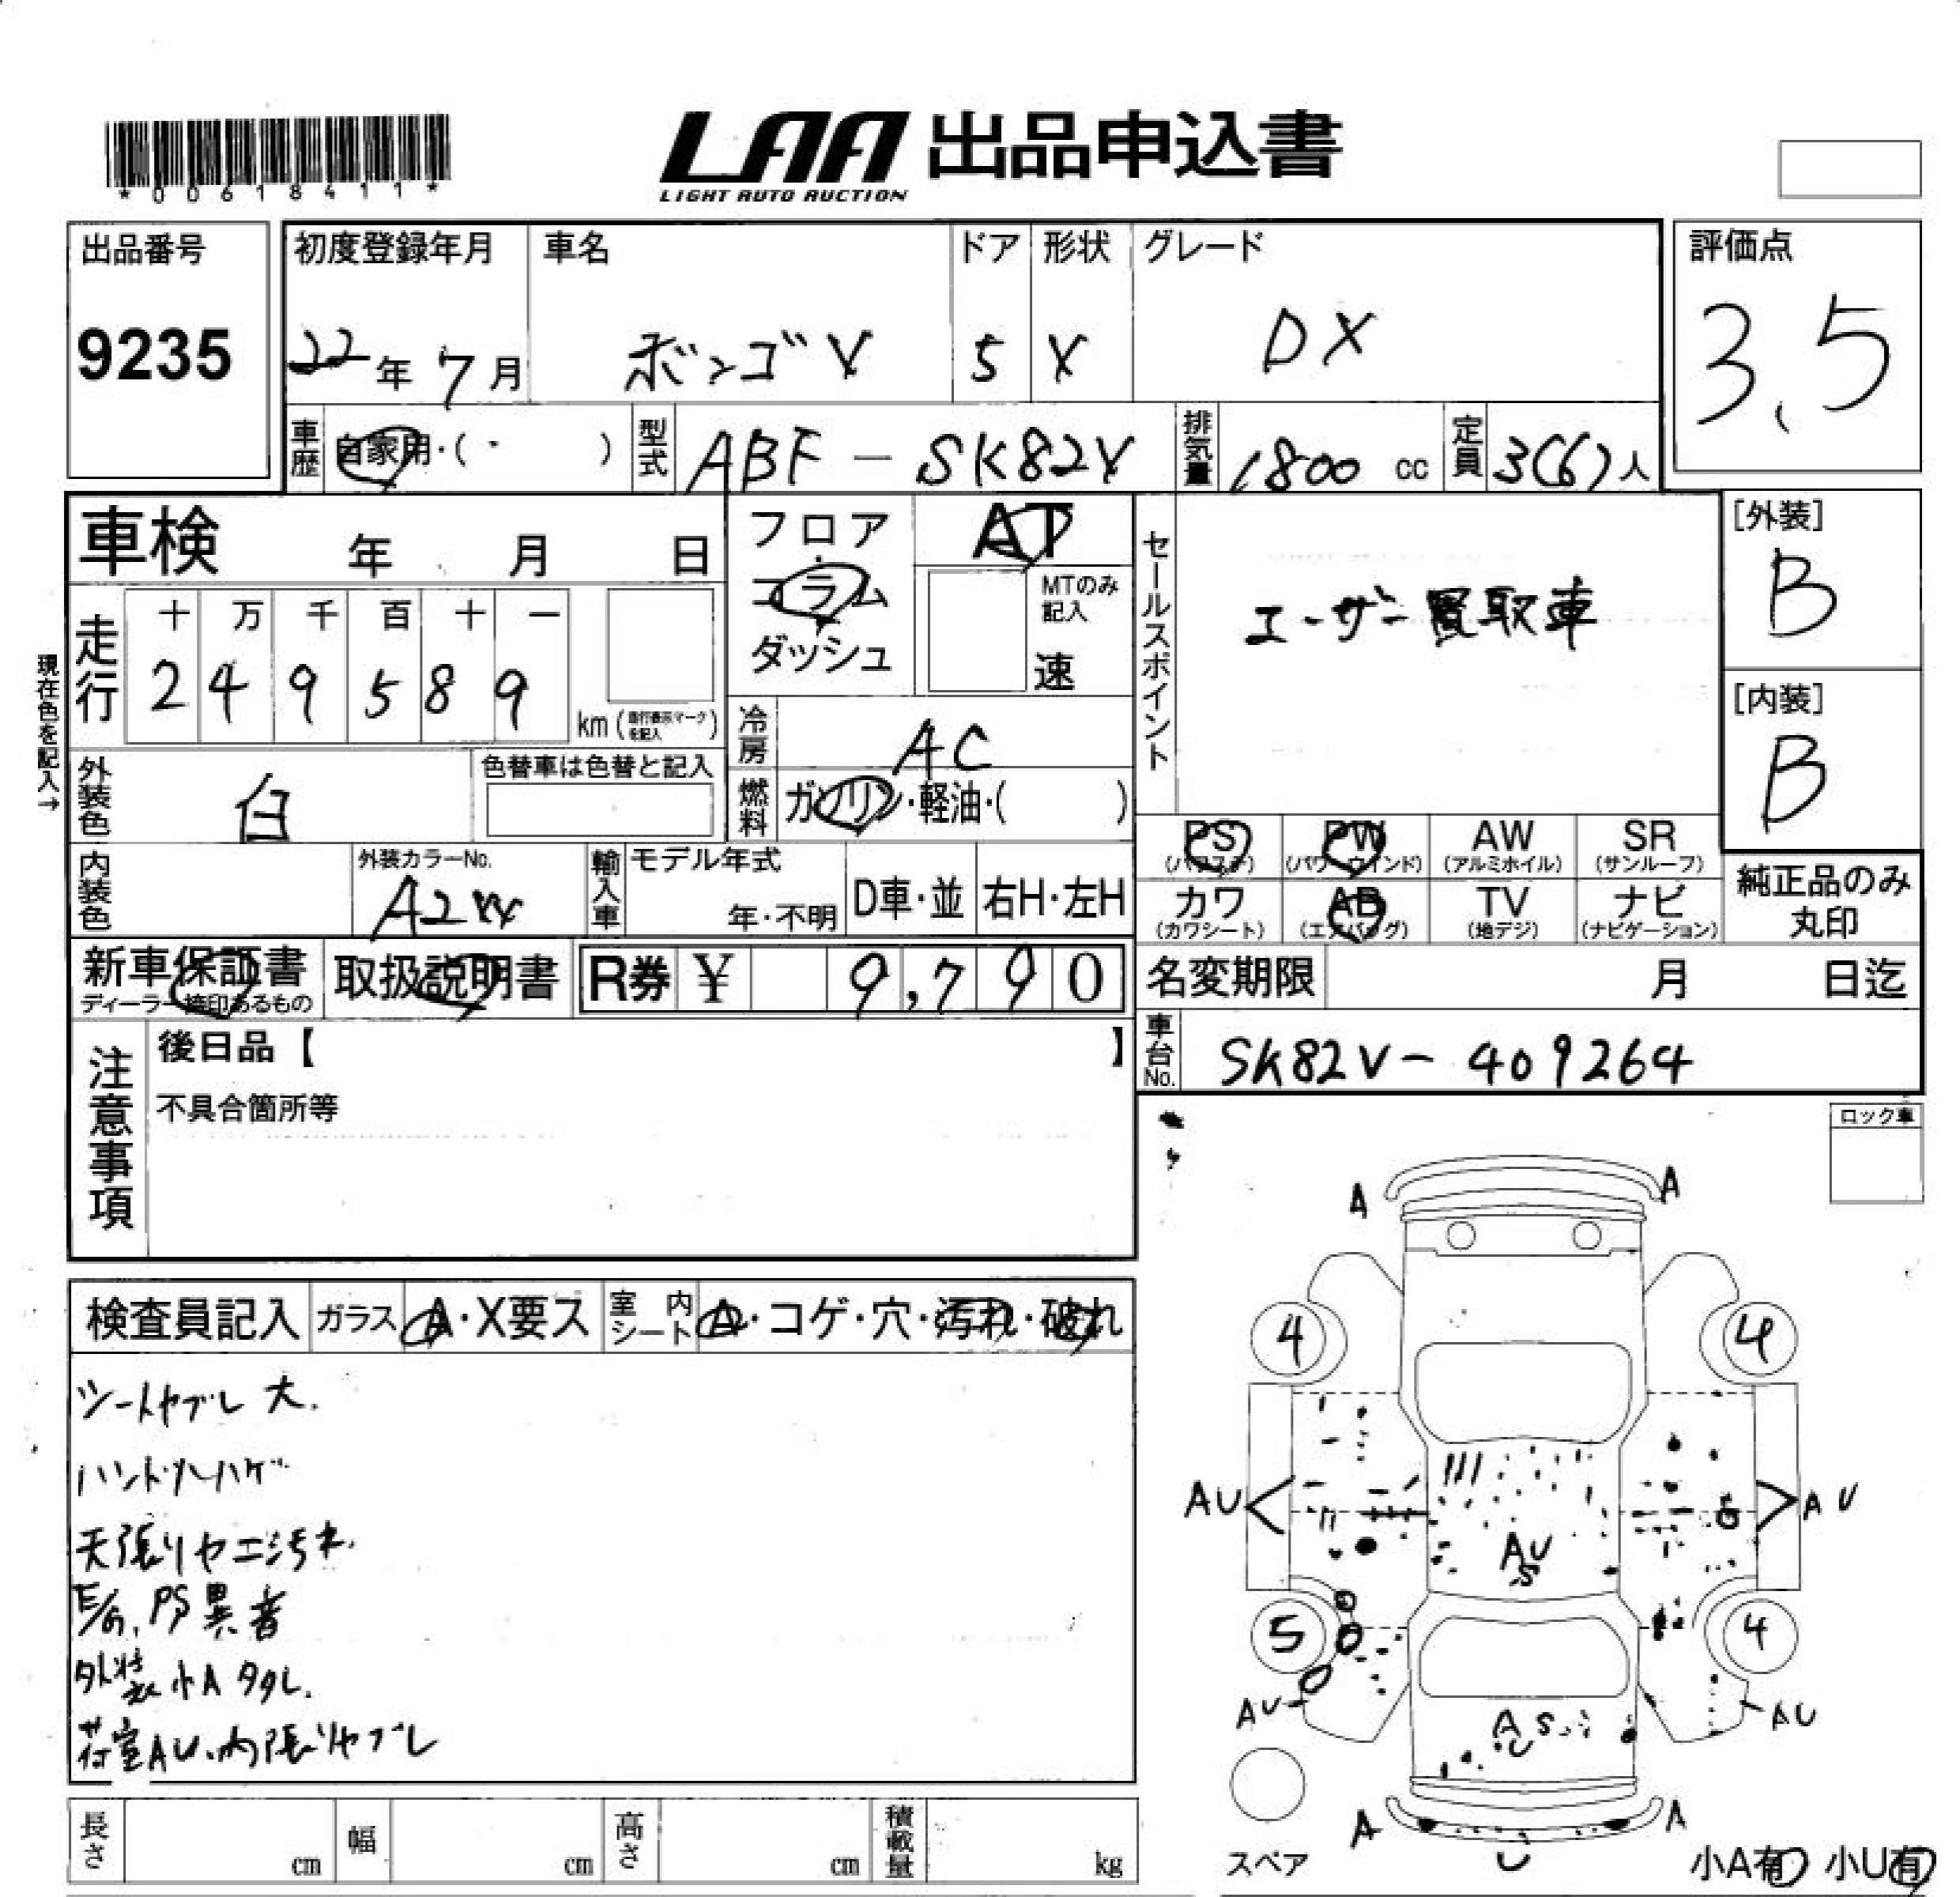 *00618411*
LAA 出品申込書
LIGHT AUTO AUCTION
出品番号
9235
初度登録年月
22年 7月
車名
ボンゴV
ドア
5
形状
V
グレード
DX
評価点
3.5
車歴 自家用・( ・ )
型式 ABF-SK82V
排気量 1800 cc
定員 3(6)人
車検 年 月 日
フロア・コラム・ダッシュ
AT
MTのみ記入
速
セールスポイント
ユーザー買取車
[外装]
B
[内装]
B
現在色を記入→
走行
十 万 千 百 十 一
2 4 9 5 8 9
km (走行表示マークを記入)
冷房 AC
燃料 ガソリン・軽油・( )
外装色 白
色替車は色替と記入
内装色
外装カラーNo.
A2W
輸入車
モデル年式
年・不明
D車・並
右H・左H
PS (パワステ)
PW (パワーウインド)
AW (アルミホイル)
SR (サンルーフ)
カワ (カワシート)
AB (エアバッグ)
TV (地デジ)
ナビ (ナビゲーション)
純正品のみ丸印
新車保証書
ディーラー捺印あるもの
取扱説明書
R券 ¥ 9,790
名変期限 月 日迄
車台No. SK82V-409264
注意事項
後日品【 】
不具合箇所等
ロック車
検査員記入
ガラス A・X要ス
室内シート A・コゲ・穴・汚れ・破れ
シートヤブレ大.
ハンドルハゲ
天張りヤニ汚れ.
E/G, PS異音
外装小A多数.
荷室AU.内張りヤブレ
A A
4 4
AU AU
AU
S
5 4
AU AU
A S
U
A A
U
スペア
小A有 小U有
長さ cm
幅 cm
高さ cm
積載量 kg